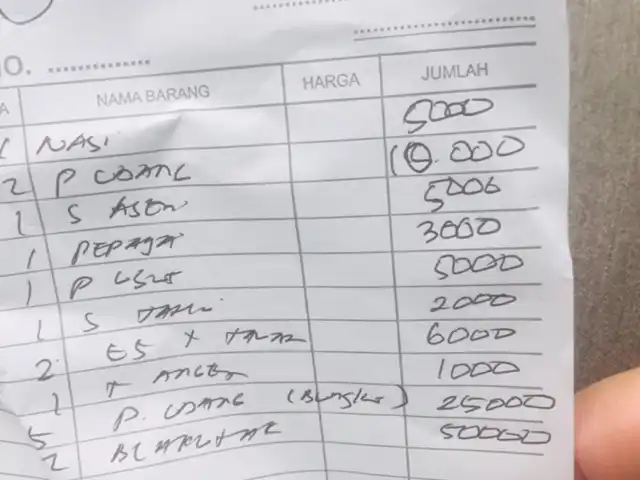 NO. ..............
NAMA BARANG HARGA JUMLAH
1 NASI 5000
2 P UDANG 10.000
1 S ASEM 5000
1 PEPAYA 3000
1 P 5000
1 S TAHU 2000
2 ES T TAWAR 6000
1 T ANGET 1000
5 P. UDANG (BUNGKUS) 25000
2 50000